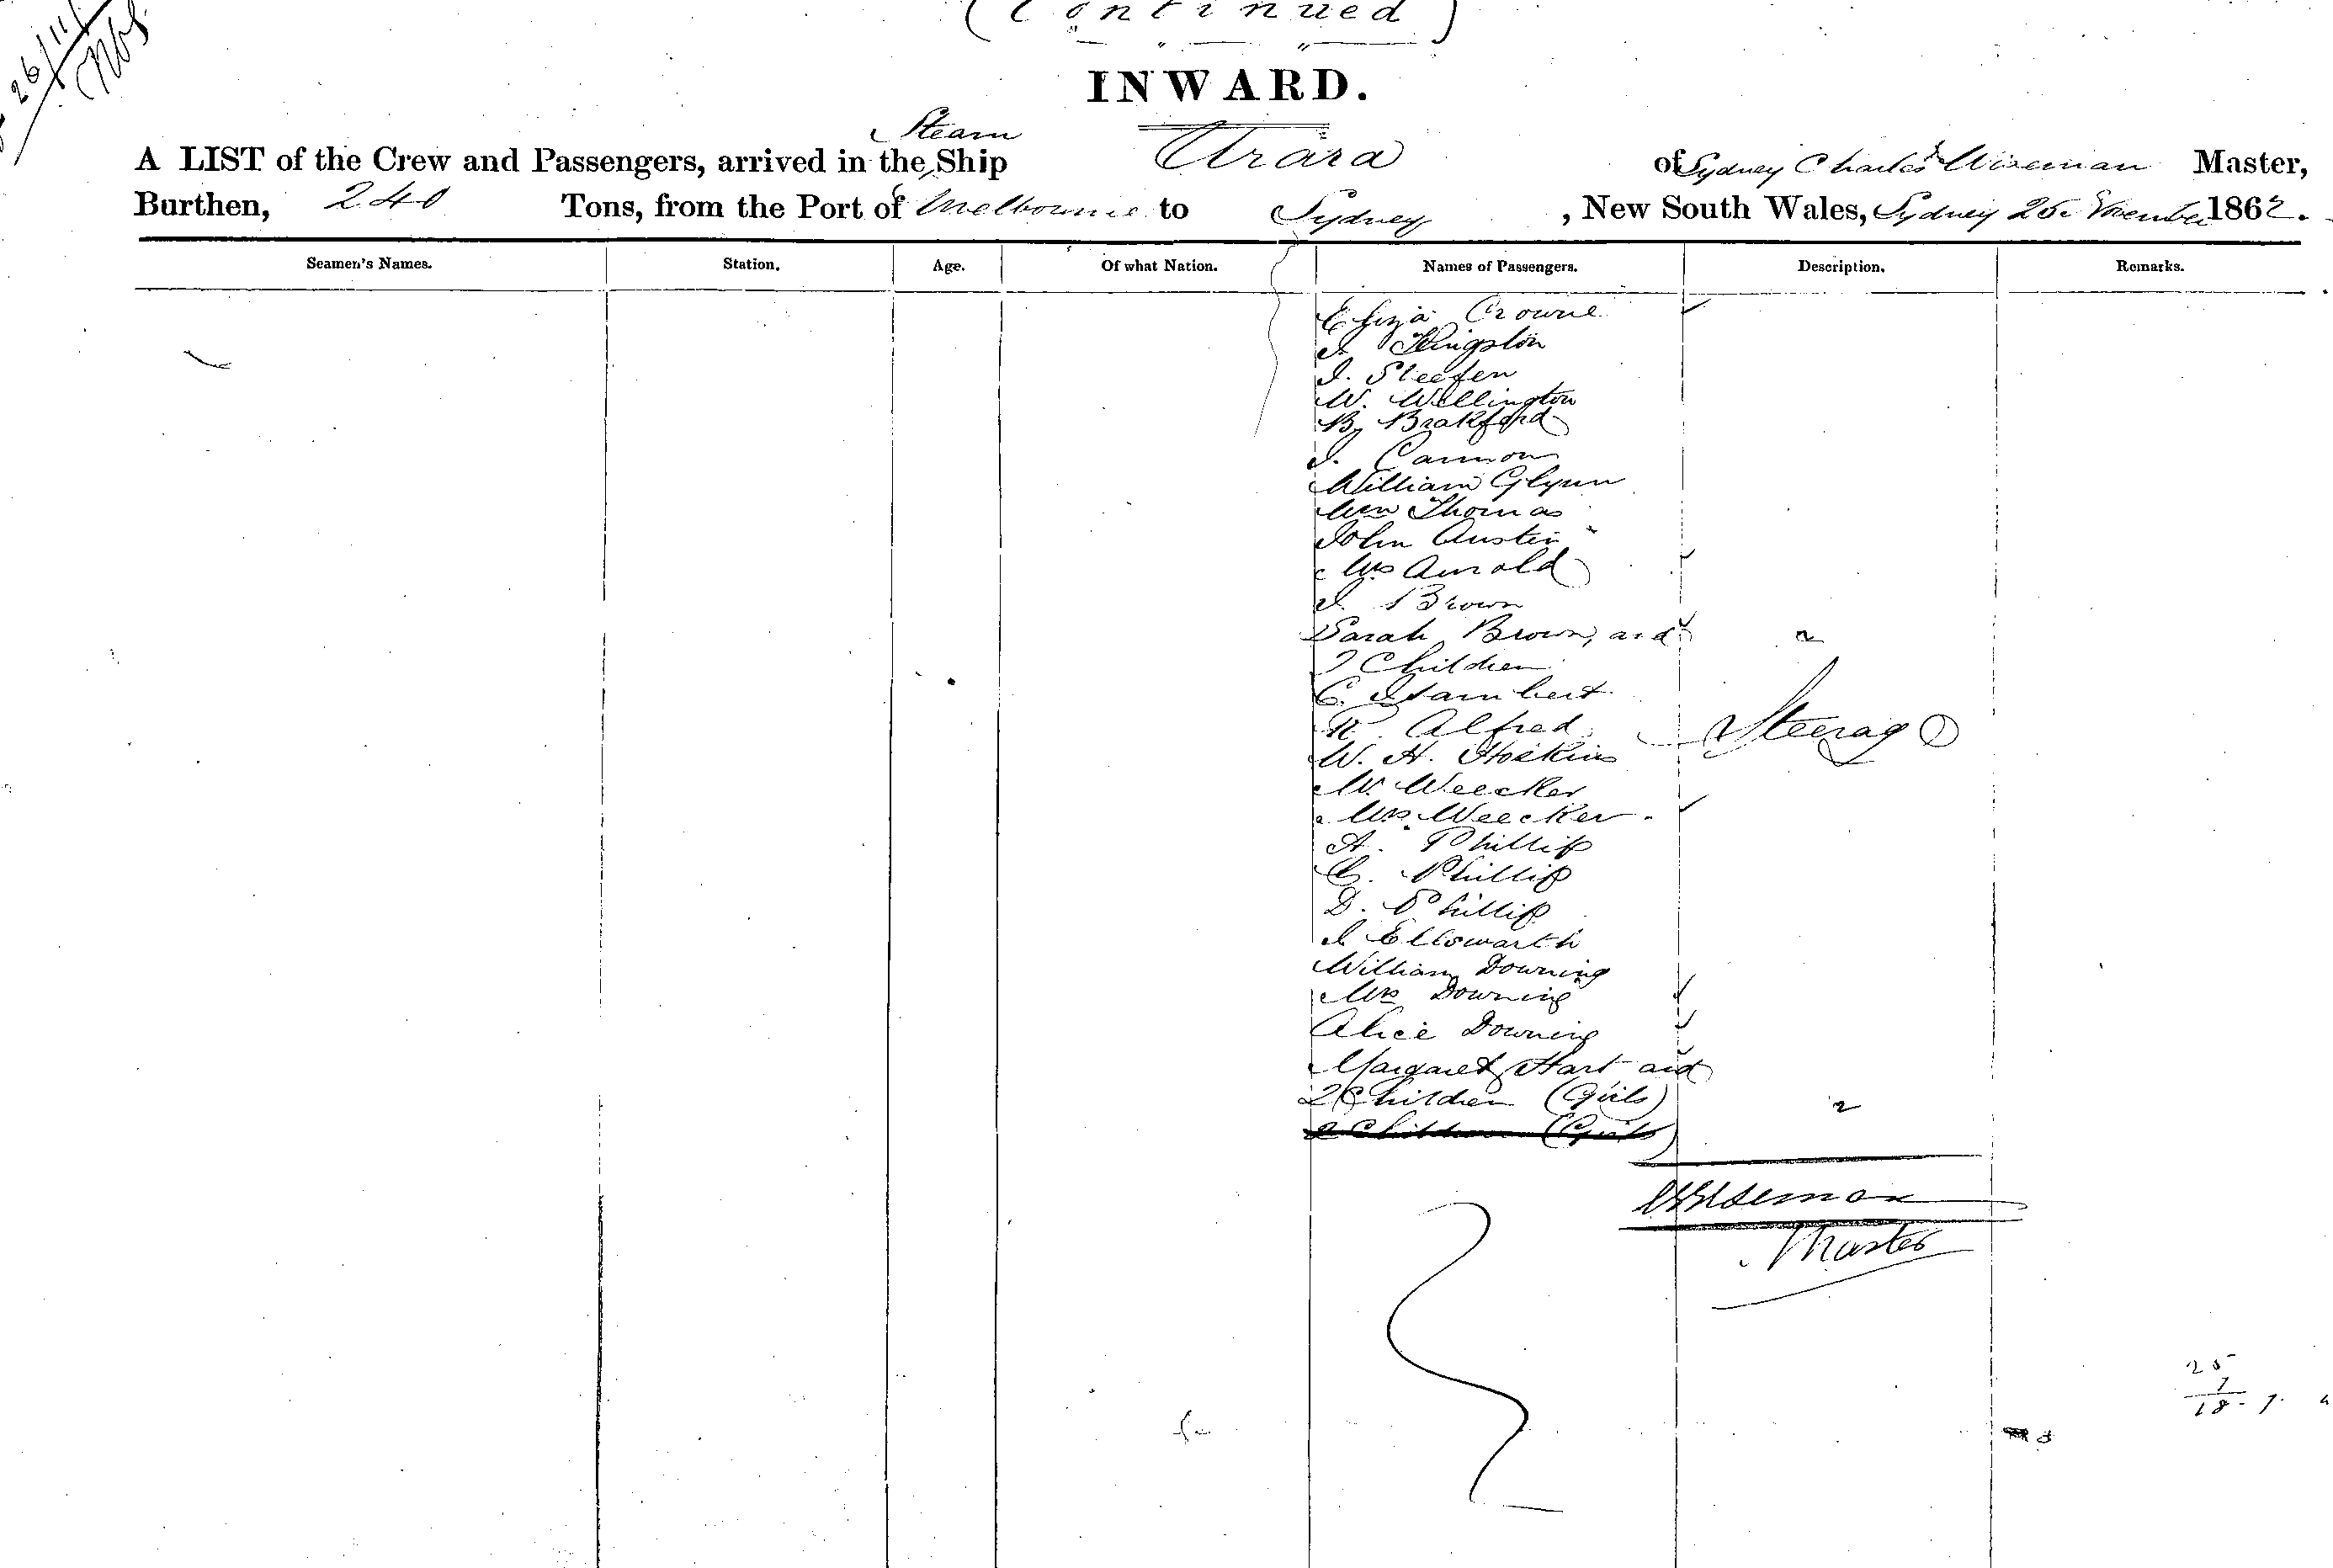 (Continued)
26/11
INWARD.
Steam
A LIST of the Crew and Passengers, arrived in the Ship Urara of Sydney Charles Wiseman Master,
Burthen, 240 Tons, from the Port of Melbourne to Sydney, New South Wales, Sydney 25 November 1862.
Seamen's Names. Station. Age. Of what Nation. Names of Passengers. Description. Remarks.
Eliza Crowne
J Kingston
J. Sleefen
W. Wellington
B. Brakford
J. Cannon
William Glynn
Wm Thomas
John Austin
Mrs Arnold
J. Brown
Sarah Brown, and 2
2 Children
C. Stambert
R. Alfred
Steerage
W. H. Hoskins
W. Weecker
Mrs Weecker
A. Phillip
C. Phillip
D. Phillip
J Ellsworth
William Downing
Mrs Downing
Alice Downing
Margaret Hart and
2 Children (Girls) 2
2 Children (Girls)
CWiseman
Master
25
7
18 - 7